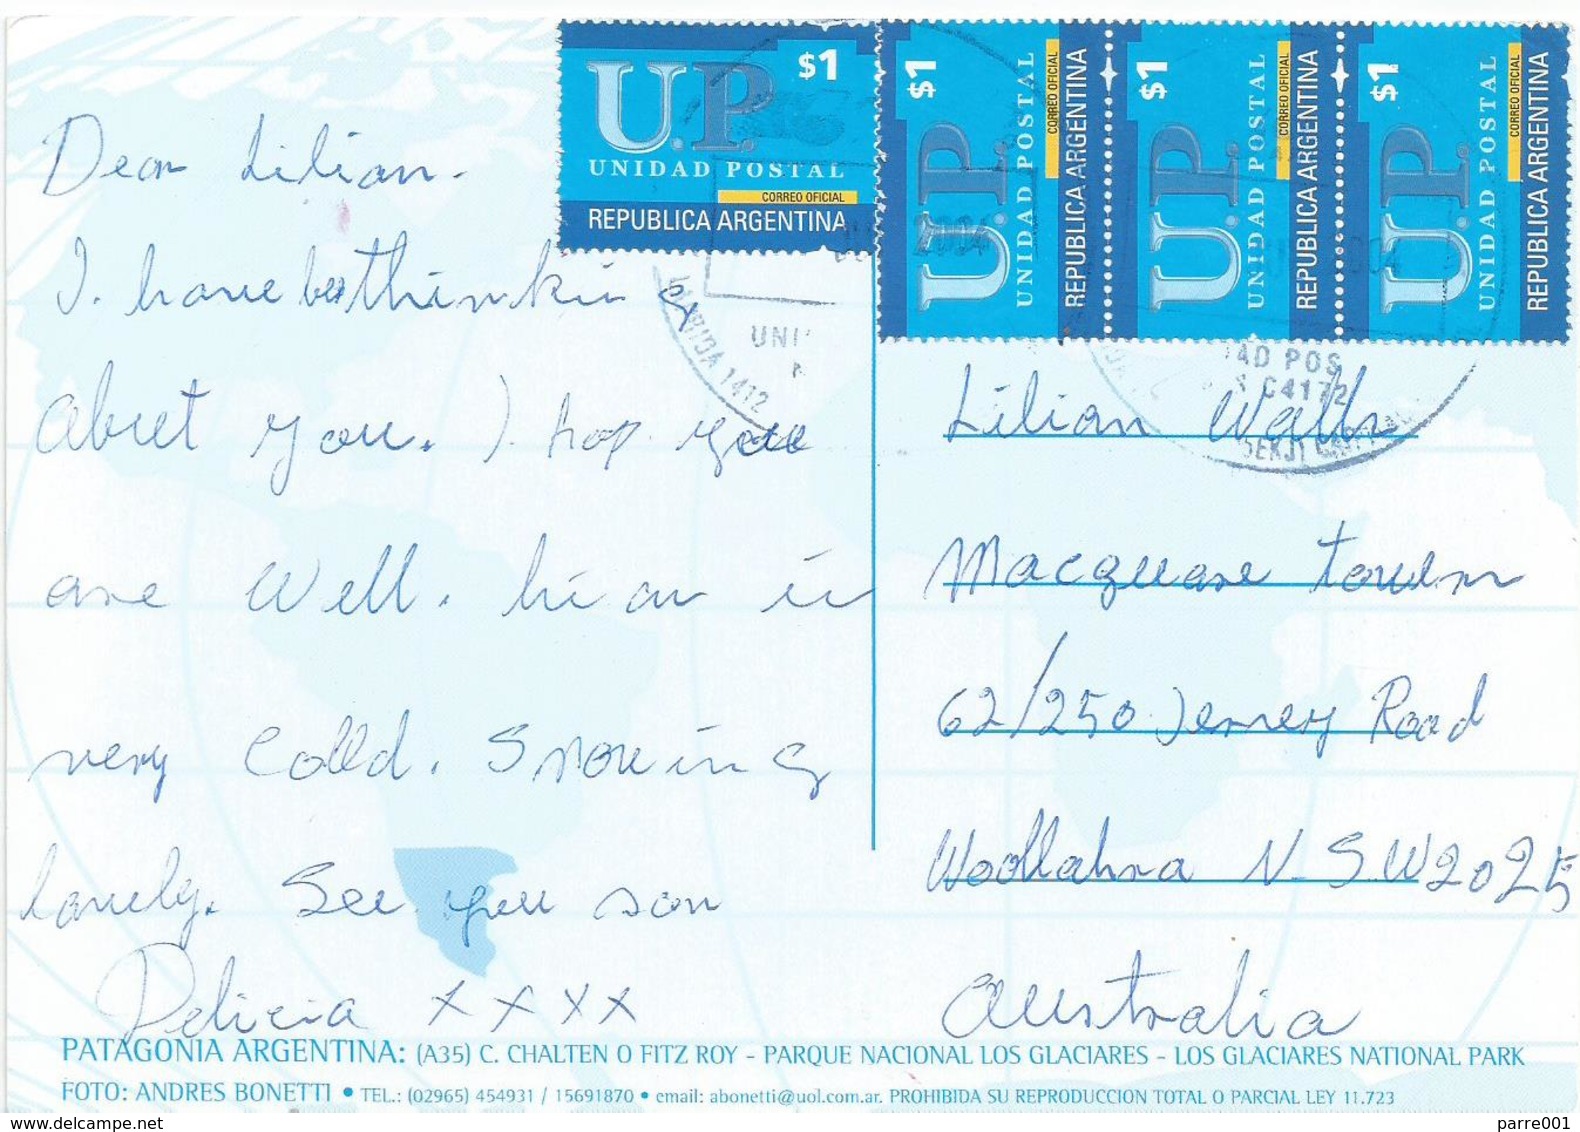 $1
U.P.
UNIDAD POSTAL
CORREO OFICIAL
REPUBLICA ARGENTINA
$1
U.P.
UNIDAD POSTAL
CORREO OFICIAL
REPUBLICA ARGENTINA
$1
U.P.
UNIDAD POSTAL
CORREO OFICIAL
REPUBLICA ARGENTINA
$1
U.P.
UNIDAD POSTAL
CORREO OFICIAL
REPUBLICA ARGENTINA
2004
1412
AD POS
C4172
Dear Lilian.
I. have thinkin
about you. I hop you
are well. hi ar is
very colld. Snowing
lovely. See you son
Delicia XXXX
Lilian
Macquare towern
62/250 Jersey Road
Woollahra N.S.W 2025
Australia
PATAGONIA ARGENTINA: (A35) C. CHALTEN O FITZ ROY - PARQUE NACIONAL LOS GLACIARES - LOS GLACIARES NATIONAL PARK
FOTO: ANDRES BONETTI • TEL.: (02965) 454931 / 15691870 • email: abonetti@uol.com.ar. PROHIBIDA SU REPRODUCCION TOTAL O PARCIAL LEY 11.723
delcampe.net
parre001